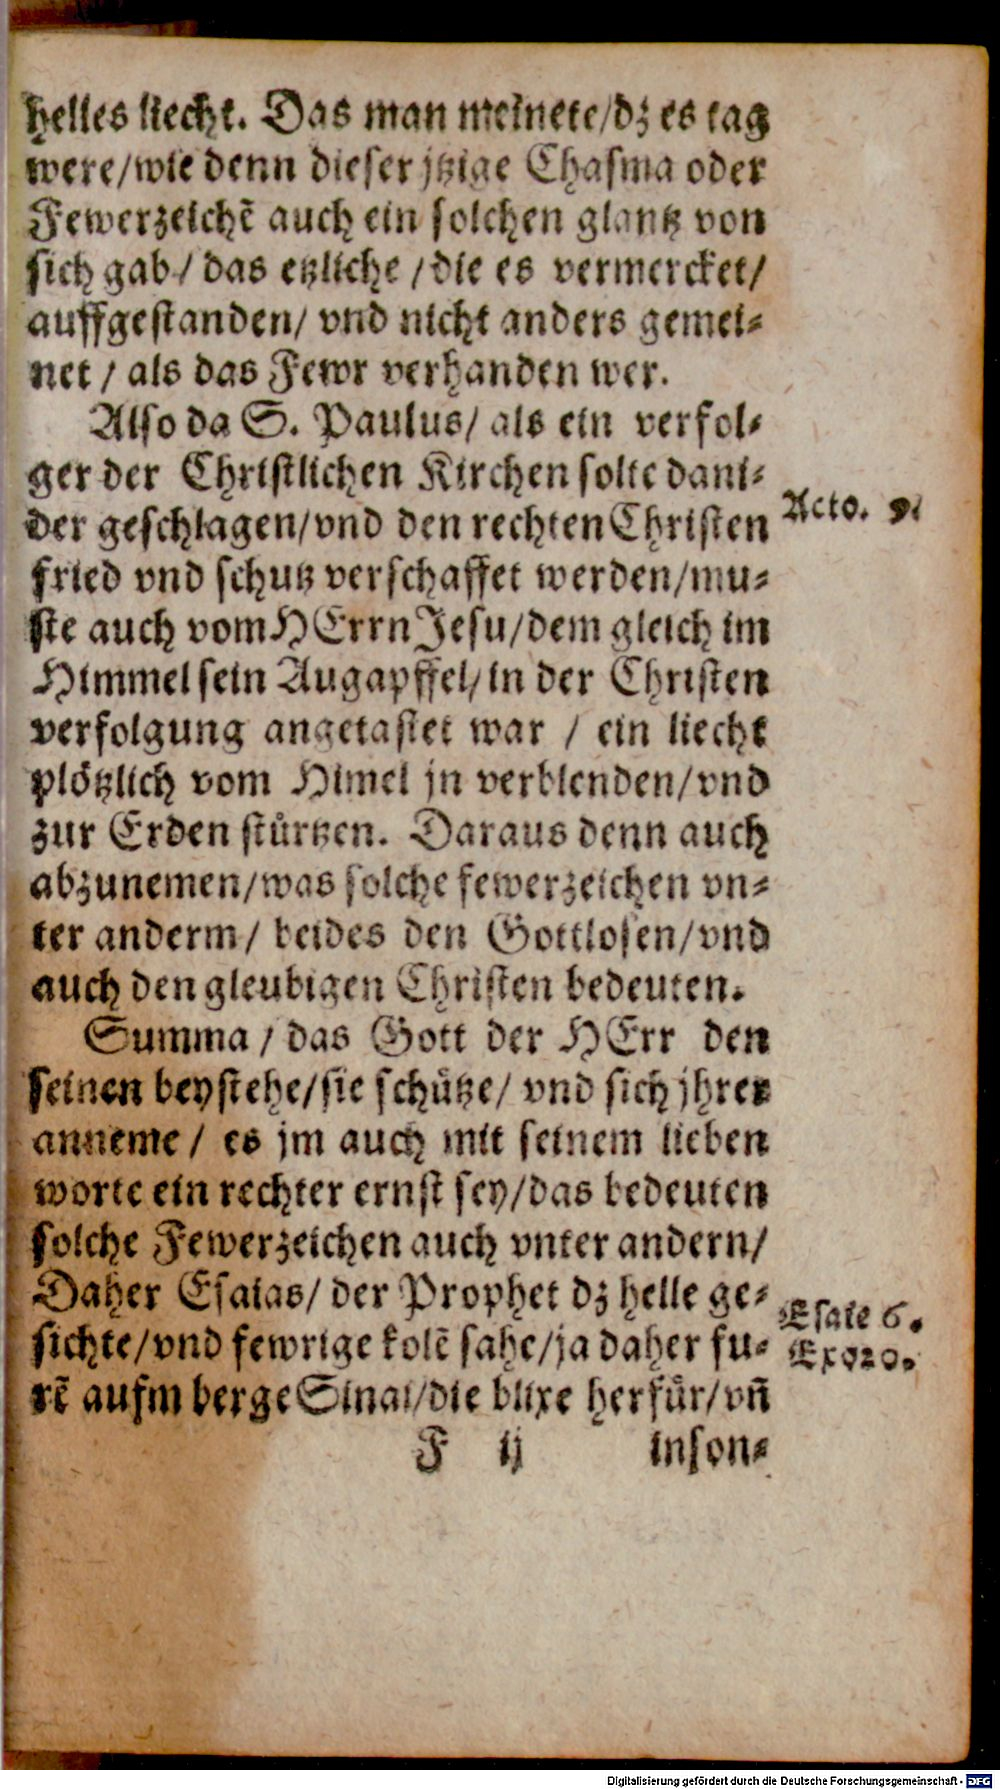 helles liecht. Das man meinete/dz es tag
were/wie denn dieser jtzige Chasma oder
Fewerzeichē auch ein solchen glantz von
sich gab/ das etzliche /die es vermercket/
auffgestanden/ vnd nicht anders gemei-
net / als das Fewr verhanden wer.
Also da S. Paulus/ als ein verfol-
ger der Christlichen Kirchen solte dani-
der geschlagen/vnd den rechten Christen
Acto. 9.
fried vnd schutz verschaffet werden/mu-
ste auch vom HErrn Jesu/dem gleich im
Himmel sein Augapffel/in der Christen
verfolgung angetastet war / ein liecht
plötzlich vom Himel jn verblenden/vnd
zur Erden stürtzen. Daraus denn auch
abzunemen/was solche fewerzeichen vn-
ter anderm/ beides den Gottlosen/vnd
auch den gleubigen Christen bedeuten.
Summa / das Gott der HErr den
seinen beystehe/sie schütze/ vnd sich jhrer
anneme / es jm auch mit seinem lieben
worte ein rechter ernst sey/das bedeuten
solche Fewerzeichen auch vnter andern/
Daher Esaias/ der Prophet dz helle ge-
Esaie 6.
sichte/vnd fewrige kolē sahe/ja daher fu-
Exo20.
rē aufm berge Sinai/die blixe herfür/vñ
F ij inson-
Digitalisierung gefördert durch die Deutsche Forschungsgemeinschaft - DFG